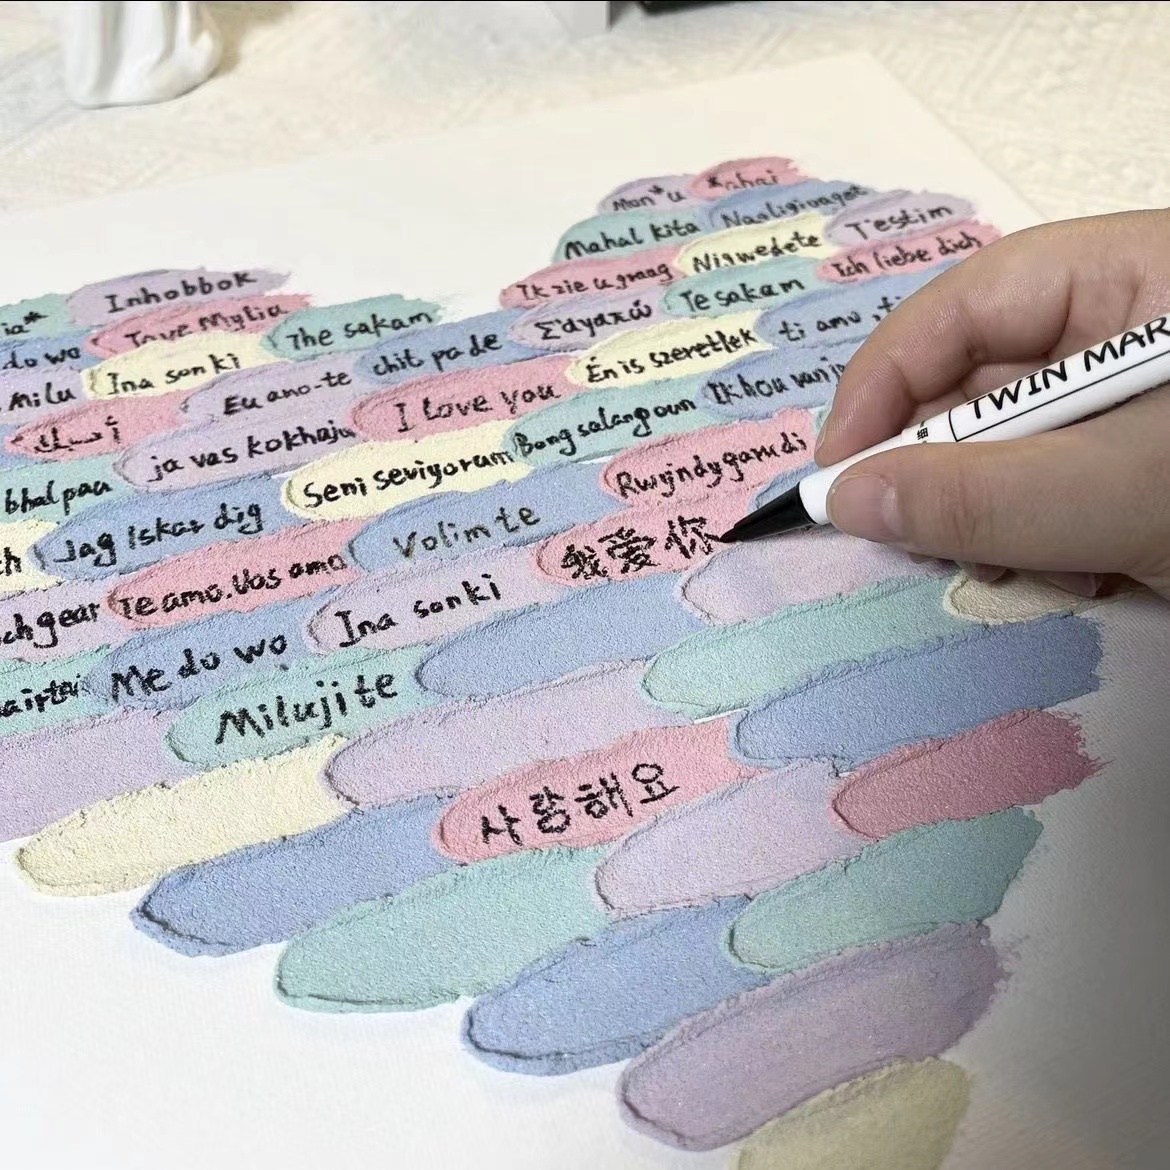 Mon*u *ahai
Mahal kita Naoligivaget
Inhobbok Ik zie u graag Nigwedete T'estim
ia* Tave Mylia The sakam Σ'αγαπώ Te sakam Ich liebe dich
do wo Ina sonki chit pa de Én is szeretlek ti amo, ti
Milu Eu amo-te I love you Bong salang oun Ik hou van
ja vas kokhaju Seni seviyorum Rwyindy garu di
bhal paa Jag Iskar dig Volim te 我爱你
ch Te amo. Vos amo Ina sonki
ch gear Me do wo
airtai Milujite
사랑해요
TWIN MAR
细